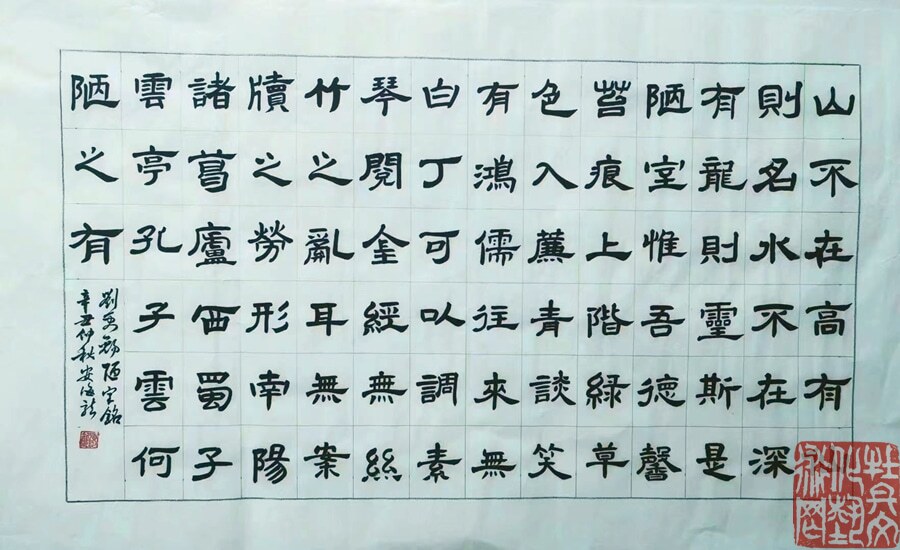 山不在高有
則名水不在深
有龍則靈斯是
陋室惟吾德馨
苔痕上階綠草
色入薕青談笑
有鴻儒往來無
白丁可以調素
琴閱金經無絲
竹之亂耳無案
牘之勞形南陽
諸葛廬西蜀子
雲亭孔子雲何
陋之有
劉禹錫陋室銘
辛丑仲秋